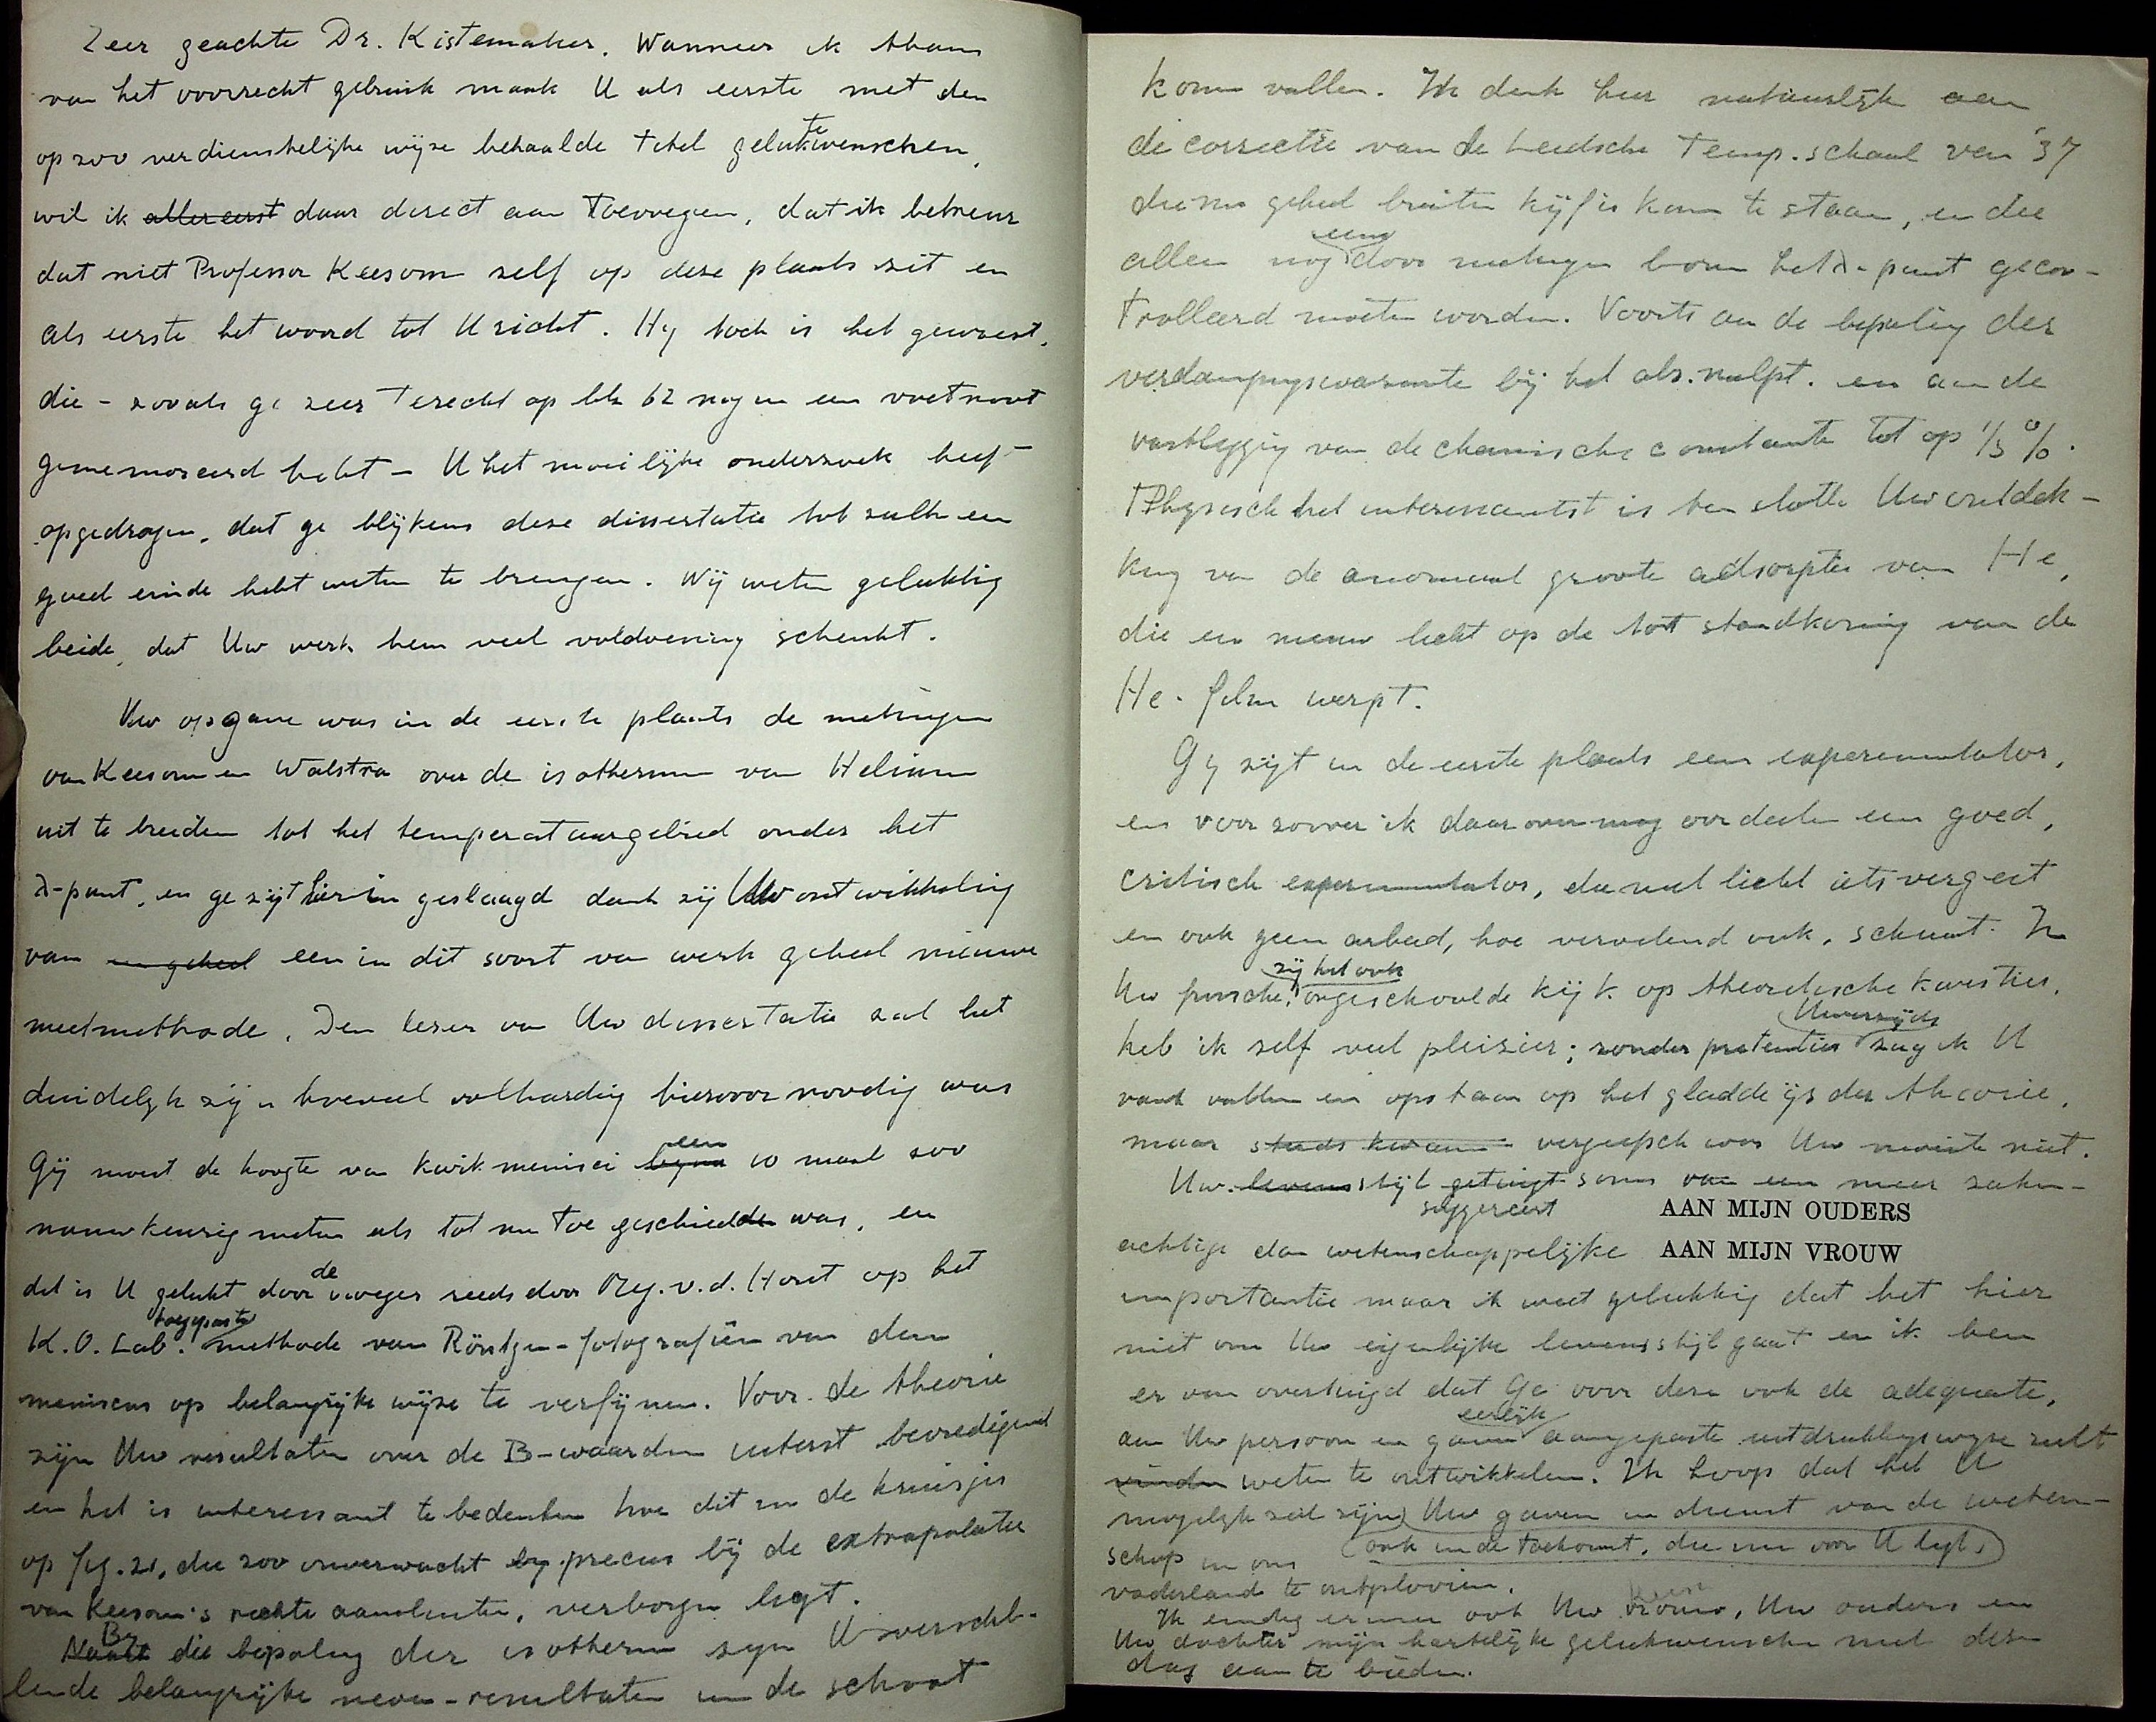 Zeer geachte Dr. Kistemaker. Wanneer ik thans
van het voorrecht gebruik maak U als eerste met den
op zoo verdienstelijke wijze behaalde titel geluk te wenschen,
wil ik allereerst daar direct aan toevoegen, dat ik betreur
dat niet Professor Keesom zelf op deze plaats zit en
als eerste het woord tot U richt. Hij toch is het geweest,
die - zooals ge zeer terecht op blz 62 nog in een voetnoot
gememoreerd hebt - U het moeilijke onderzoek heeft
opgedragen, dat ge blijkens deze dissertatie tot zulk een
goed einde hebt weten te brengen. Wij weten gelukkig
beide, dat Uw werk hem veel voldoening schenkt.
Uw opgave was in de eerste plaats de metingen
van Keesom en Walstra over de isothermen van Helium
uit te breiden tot het temperatuurgebied onder het
λ-punt, en ge zijt hierin geslaagd dank zij Uw ontwikkeling
van een geheel een in dit soort van werk geheel nieuwe
meetmethode. Den lezer van Uw dissertatie zal het
duidelijk zijn hoeveel volharding hiervoor noodig was
Gij moest de hoogte van kwikmenisci bijna een 10 maal zoo
nauwkeurig meten als tot nu toe geschied was, en
dit is U gelukt door de vroeger reeds door Mej. v.d. Horst op het
K.O. Lab. toegepaste methode van Röntgen-fotografiën van den
meniscus op belangrijke wijze te verfijnen. Voor de theorie
zijn Uw resultaten over de B-waarden uiterst bevredigend
en het is interessant te bedenken hoe dit in de kruisjes
op fig. 20, die zoo onverwacht precies bij de extrapolatie
van Keesom's rechte aansluiten, verborgen ligt.
Naast Bij die bepaling der isothermen zijn U verschil-
lende belangrijke neven-resultaten in de schoot
komen vallen. Ik denk hier natuurlijk aan
de correctie van de Leidsche Temp. schaal van '37
die nu geheel buiten kijf is komen te staan, en die
alleen nog eens door metingen boven het λ-punt gecon-
trolleerd moeten worden. Voorts aan de bepaling der
verdampingswarmte bij het abs. nulpt. en aan de
vastlegging van de chemische constante tot op 1/3 %.
Physisch het interessantst is ten slotte Uw ontdek-
king van de anomaal groote adsorptie van He,
die een nieuw licht op de totstandkoming van de
He-film werpt.
Gij zijt in de eerste plaats een experimentator,
en voor zoover ik daarover mag oordeelen een goed,
critisch experimentator, die niet licht iets vergeet
en ook geen arbeid, hoe vervelend ook, schuwt. In
Uw frissche, zij het ook ongeschoolde kijk op theoretische kwesties,
heb ik zelf veel pleizier; zonder pretenties Uwerzijds zag ik U
vaak vallen en opstaan op het gladde ijs der theorie,
maar steeds kwam vergeefsch was Uw moeite niet.
Uw levensstijl getuigt suggereert soms van een meer zaken-
AAN MIJN OUDERS
achtige dan wetenschappelijke
AAN MIJN VROUW
importantie maar ik weet gelukkig dat het hier
niet om Uw eigenlijke levensstijl gaat en ik ben
er van overtuigd dat Ge voor deze ook de adequate,
aan Uw persoon en gaven eerlijk aangepaste uitdrukkingswijze zult
vinden weten te ontwikkelen. Ik hoop dat het U
mogelijk zal zijn Uw gaven in dienst van de weten-
schap in ons (ook in de toekomst, die nu voor U ligt,)
vaderland te ontplooien.
Ik eindig ermee ook Uw vrouw, Uw ouders en
Uw dochter mijn hartelijke gelukwenschen met deze
dag aan te bieden.